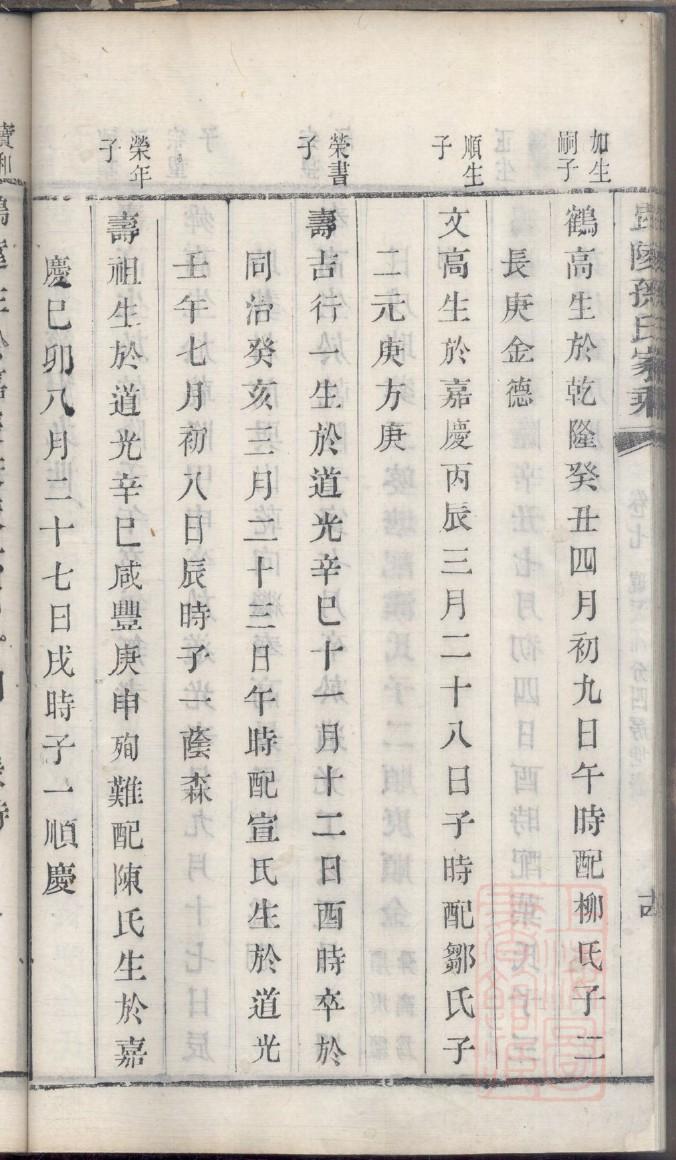 毘陵孫氏家乘
加生嗣子
鶴高生於乾隆癸丑四月初九日午時配柳氏子二
長庚金德
順生子
文高生於嘉慶丙辰三月二十八日子時配鄒氏子
二元庚方庚
榮書子
壽吉行一生於道光辛巳十一月十二日酉時卒於
同治癸亥三月二十三日午時配宣氏生於道光
壬午七月初八日辰時子一蔭森
榮年子
壽祖生於道光辛巳咸豐庚申殉難配陳氏生於嘉
慶己卯八月二十七日戌時子一順慶